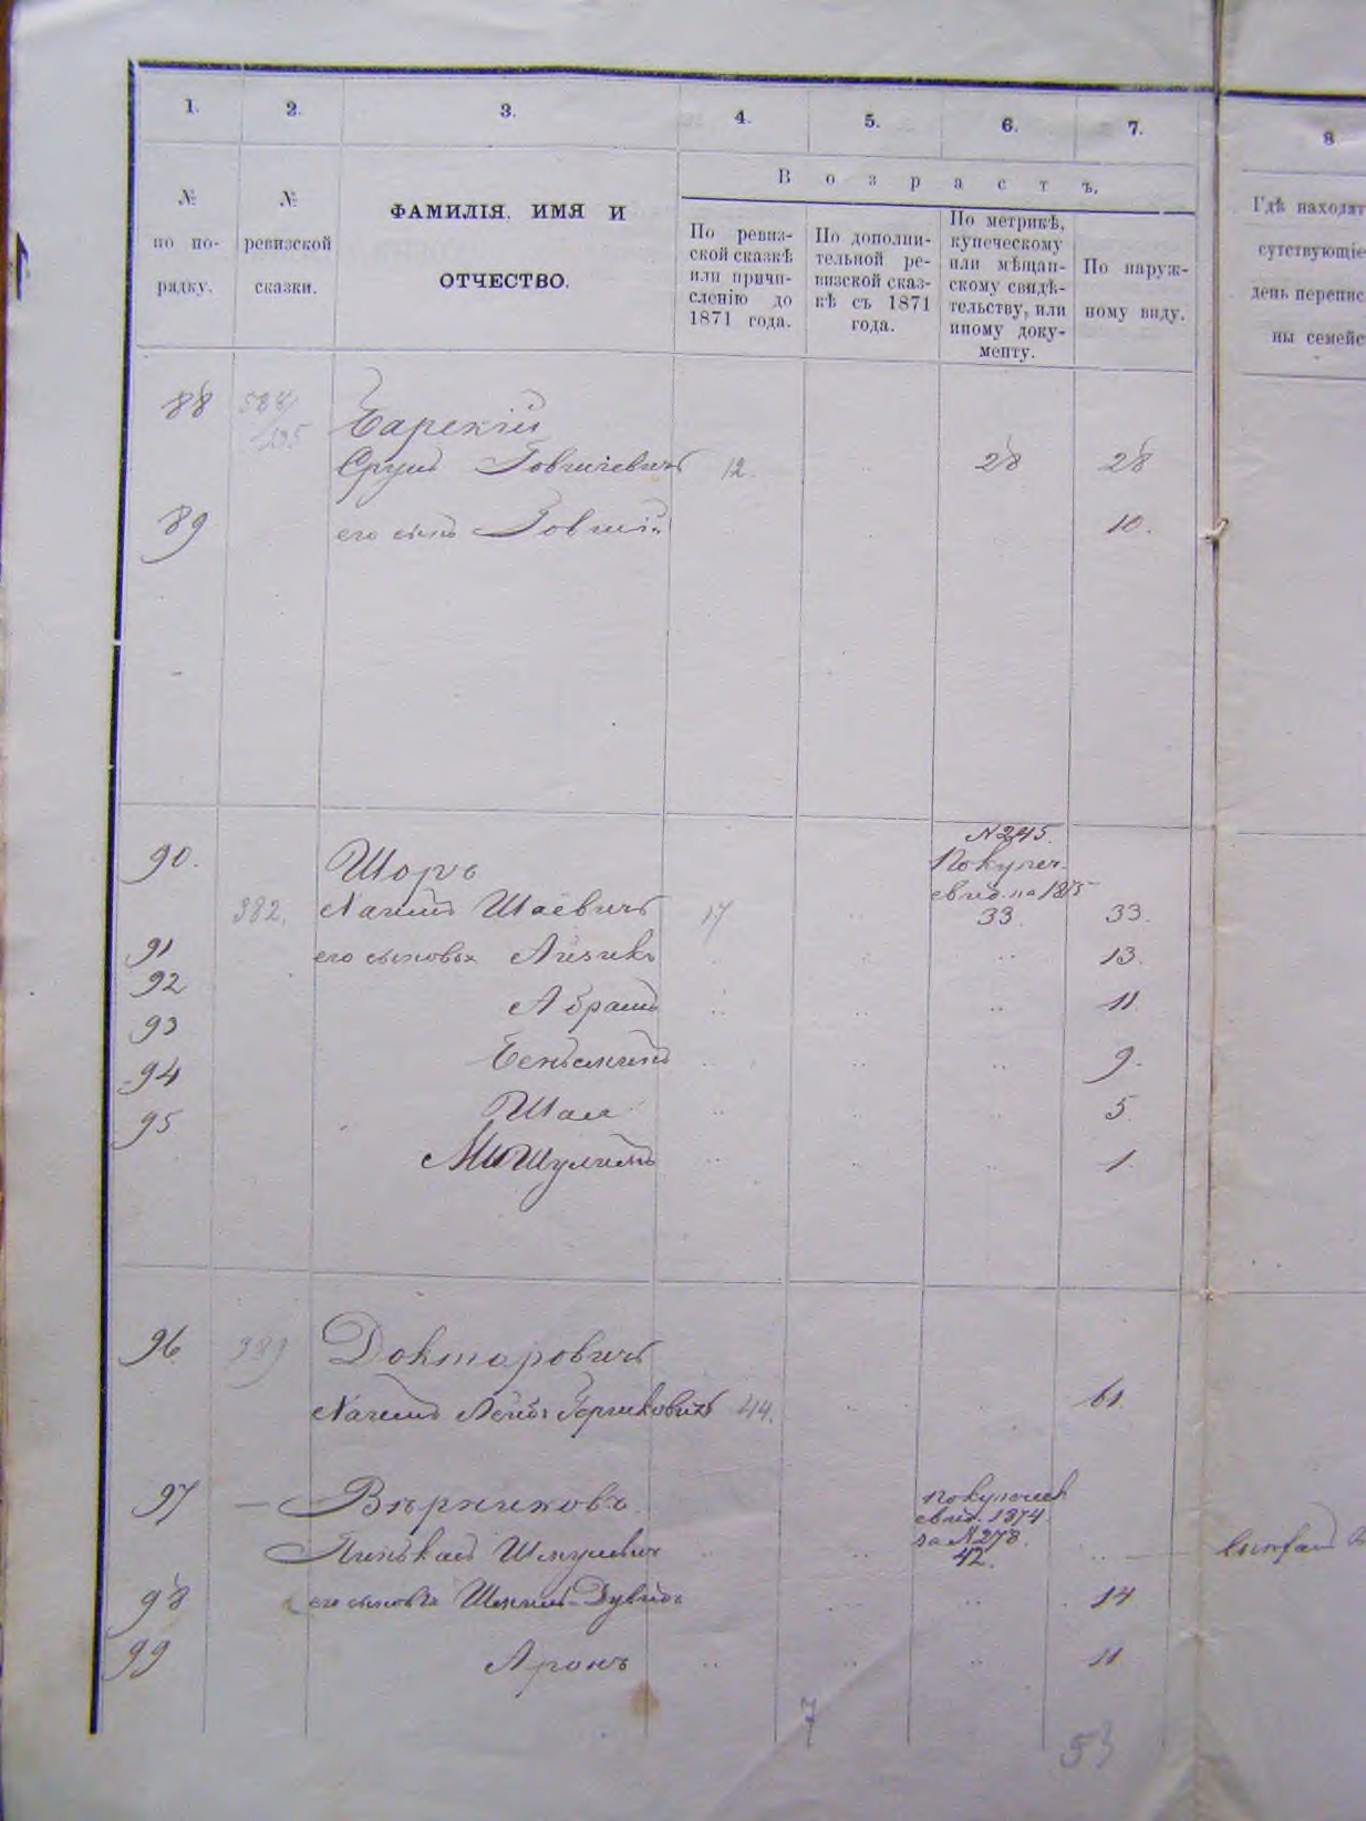 1. 2. 3. 4. 5. 6. 7. 8
№ по по-рядку.
№ ревизской сказки.
ФАМИЛІЯ, ИМЯ И
ОТЧЕСТВО.
Возрастъ,
По ревиз-
ской сказкѣ
или причи-
сленію до
1871 года.
По дополни-
тельной ре-
визской сказ-
кѣ съ 1871
года.
По метрикѣ,
купеческому
или мѣщан-
скому свидѣ-
тельству, или
иному доку-
менту.
По наруж-
ному виду.
Гдѣ находят
сутствующіе
день перепис
ны семейс
88
Барскій
Срулъ Говшіевичъ 12. 28 28
89 его сынъ Говшій 10.
№ 245.
90. Шоръ По купеч.
свид. на 1875
382. Нахимъ Шаевичъ 17 33. 33.
91 его сыновья Айзикъ 13.
92 Абрамъ 11
93 Беньяминъ 9.
94 Шая 5
95 Мишулимъ 1
96 Доктаровичъ
Нахимъ Лейбъ Гершковичъ 44. 61.
97 Вѣрниковъ по купеческ
свид. 1874
за № 278.
Пинькасъ Шмулевичъ 42.
98 его сыновья Шмиль-Дувидъ 14
99 Аронъ 11
7
53